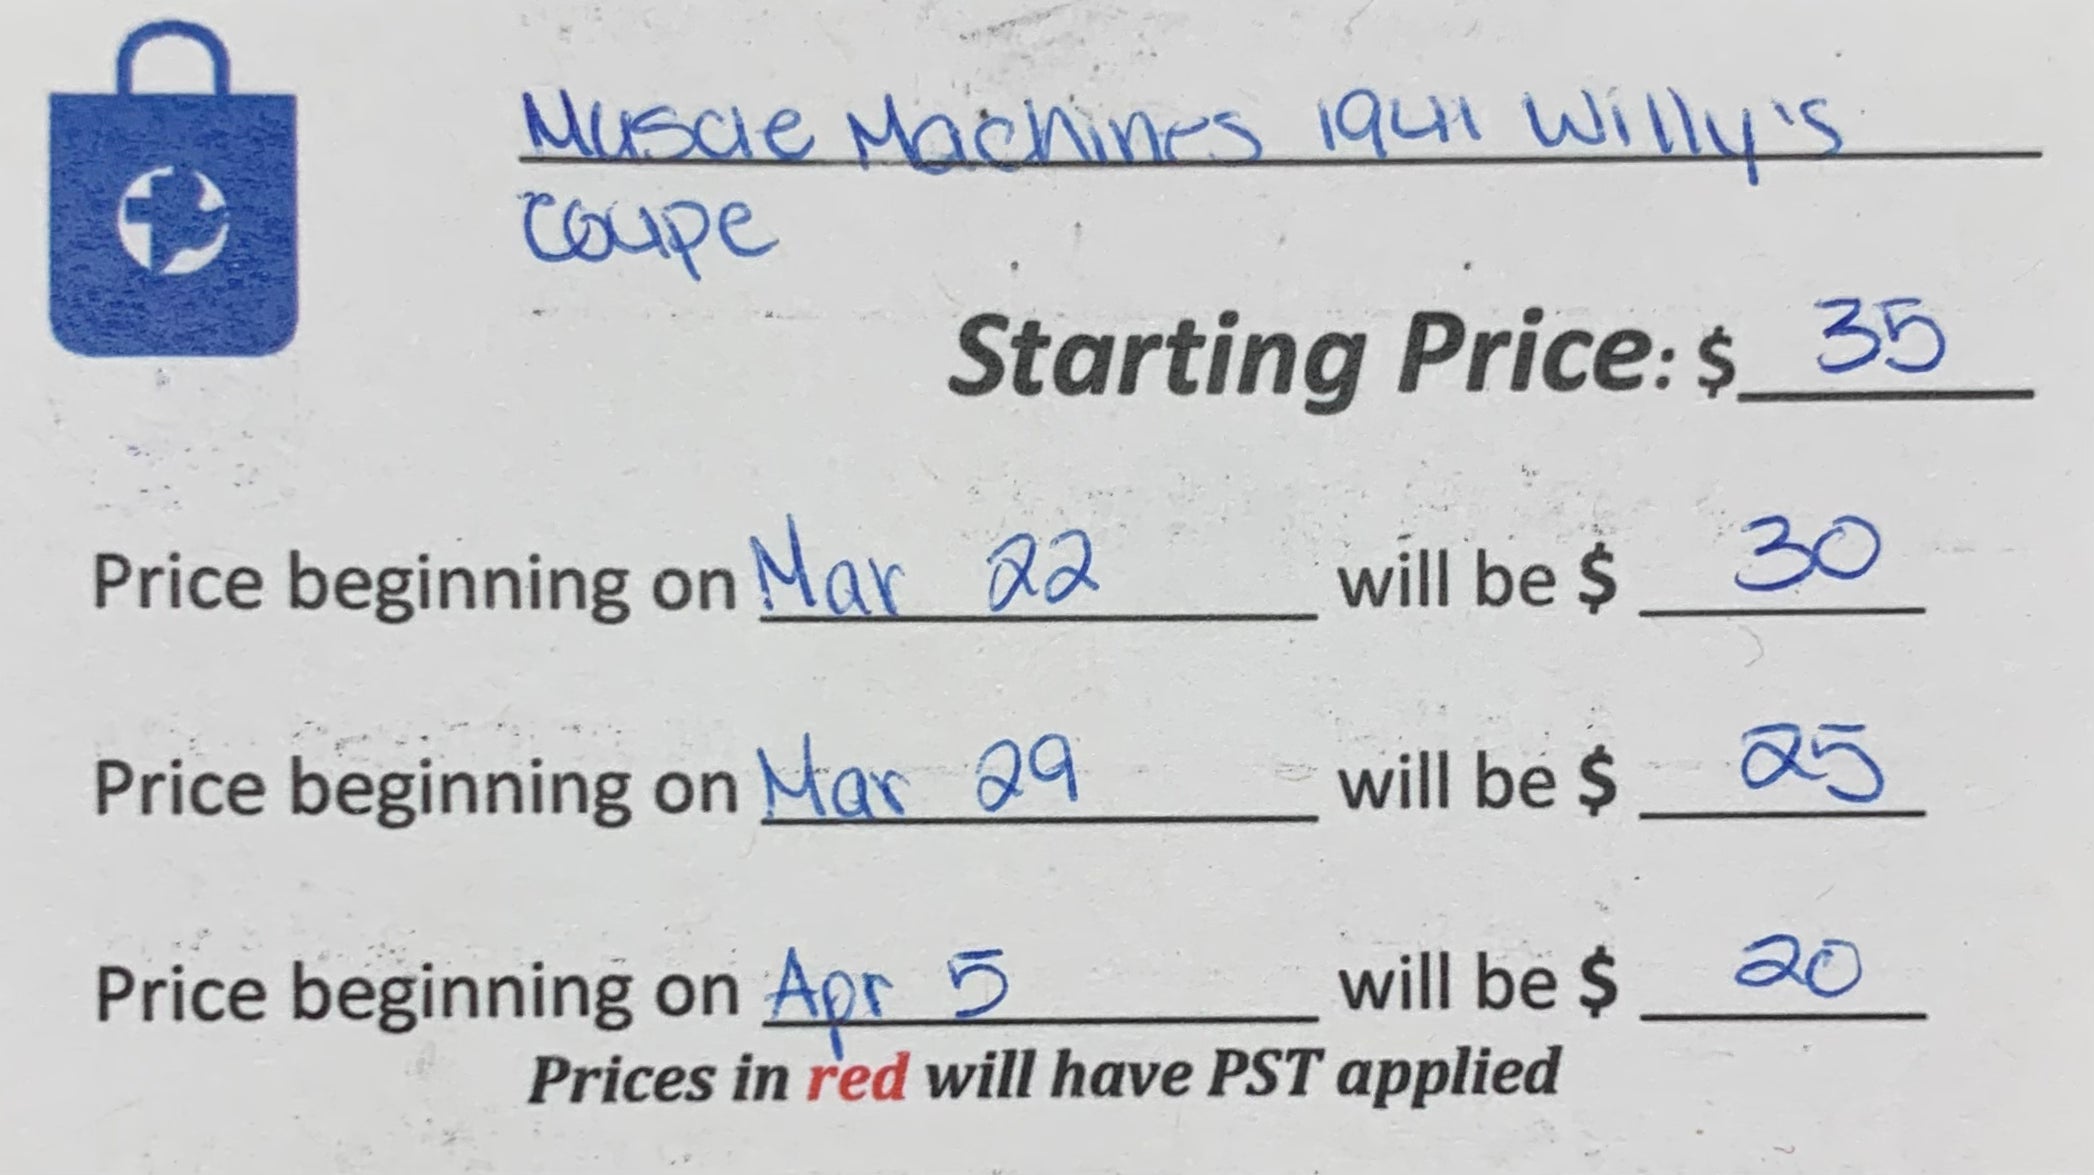 Muscle Machines 1941 Willy's
Coupe
Starting Price: $ 35
Price beginning on Mar 22 will be $ 30
Price beginning on Mar 29 will be $ 25
Price beginning on Apr 5 will be $ 20
Prices in red will have PST applied